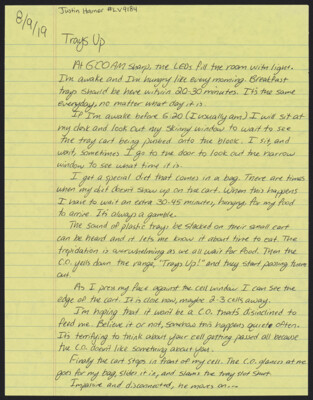 Justin Hamer #LV9184
8/9/19
Trays Up
At 6:00 AM sharp, the LEDs fill the room with light.
I'm awake and I'm hungry like every morning. Breakfast
trays should be here within 20-30 minutes. It's the same
everyday, no matter what day it is.
If I'm awake before 6:20 (I usually am) I will sit at
my desk and look out my skinny window to wait to see
the tray cart being pushed onto the block. I sit, and
wait, sometimes I go to the door to look out the narrow
window to see what time it is.
I get a special diet that comes in a bag. There are times
when my diet doesn't show up on the cart. When this happens
I have to wait an extra 30-45 minutes, hungry for my food
to arrive. It's always a gamble.
The sound of plastic trays be stacked on their small cart
can be heard and it lets me know it about time to eat. The
trepidation is overwhelming as we all wait for food. Then the
C.O. yells down the range, "Trays Up!" and they start passing them
out.
As I press my face against the cell window I can see the
edge of the cart. It is close now, maybe 2-3 cells away.
I'm hoping that it won't be a C.O. that's disinclined to
feed me. Believe it or not, somehow this happens quite often.
It's terrifying to think about your cell getting passed all because
the C.O. doesn't like something about you.
Finally the cart stops in front of my cell. The C.O. glances at me
goes for my bag, slides it in, and slams the tray slot shut.
Impassive and disconnected, he moves on...